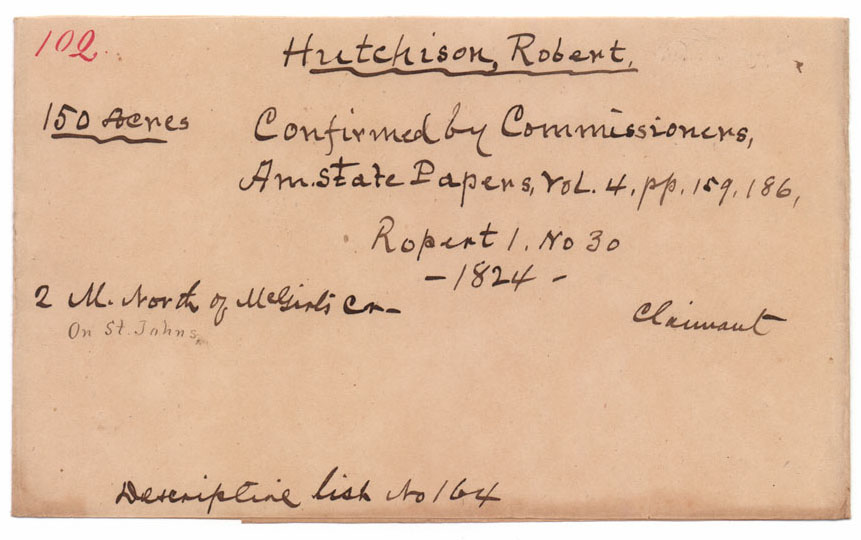 102.
Hutchison, Robert.
150 Acres
Confirmed by Commissioners,
Am. State Papers, Vol. 4. pp. 159. 186,
Ropert 1. No 30
- 1824 -
2 M. North of McGirt's Cr-
On St. Johns.
Claimant
Descriptive list No 164